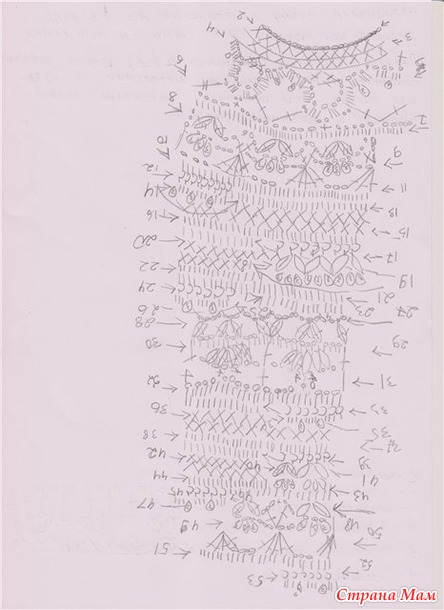 2
4
3
6
7
8
9
12
11
14
13
16
15
20
17
22
18
19
24
21
23
27
26
28
29
30
31
32
36
35
38
42
40
39
44
41
45
43
47
48
49
50
51
52
53
Страна Мам